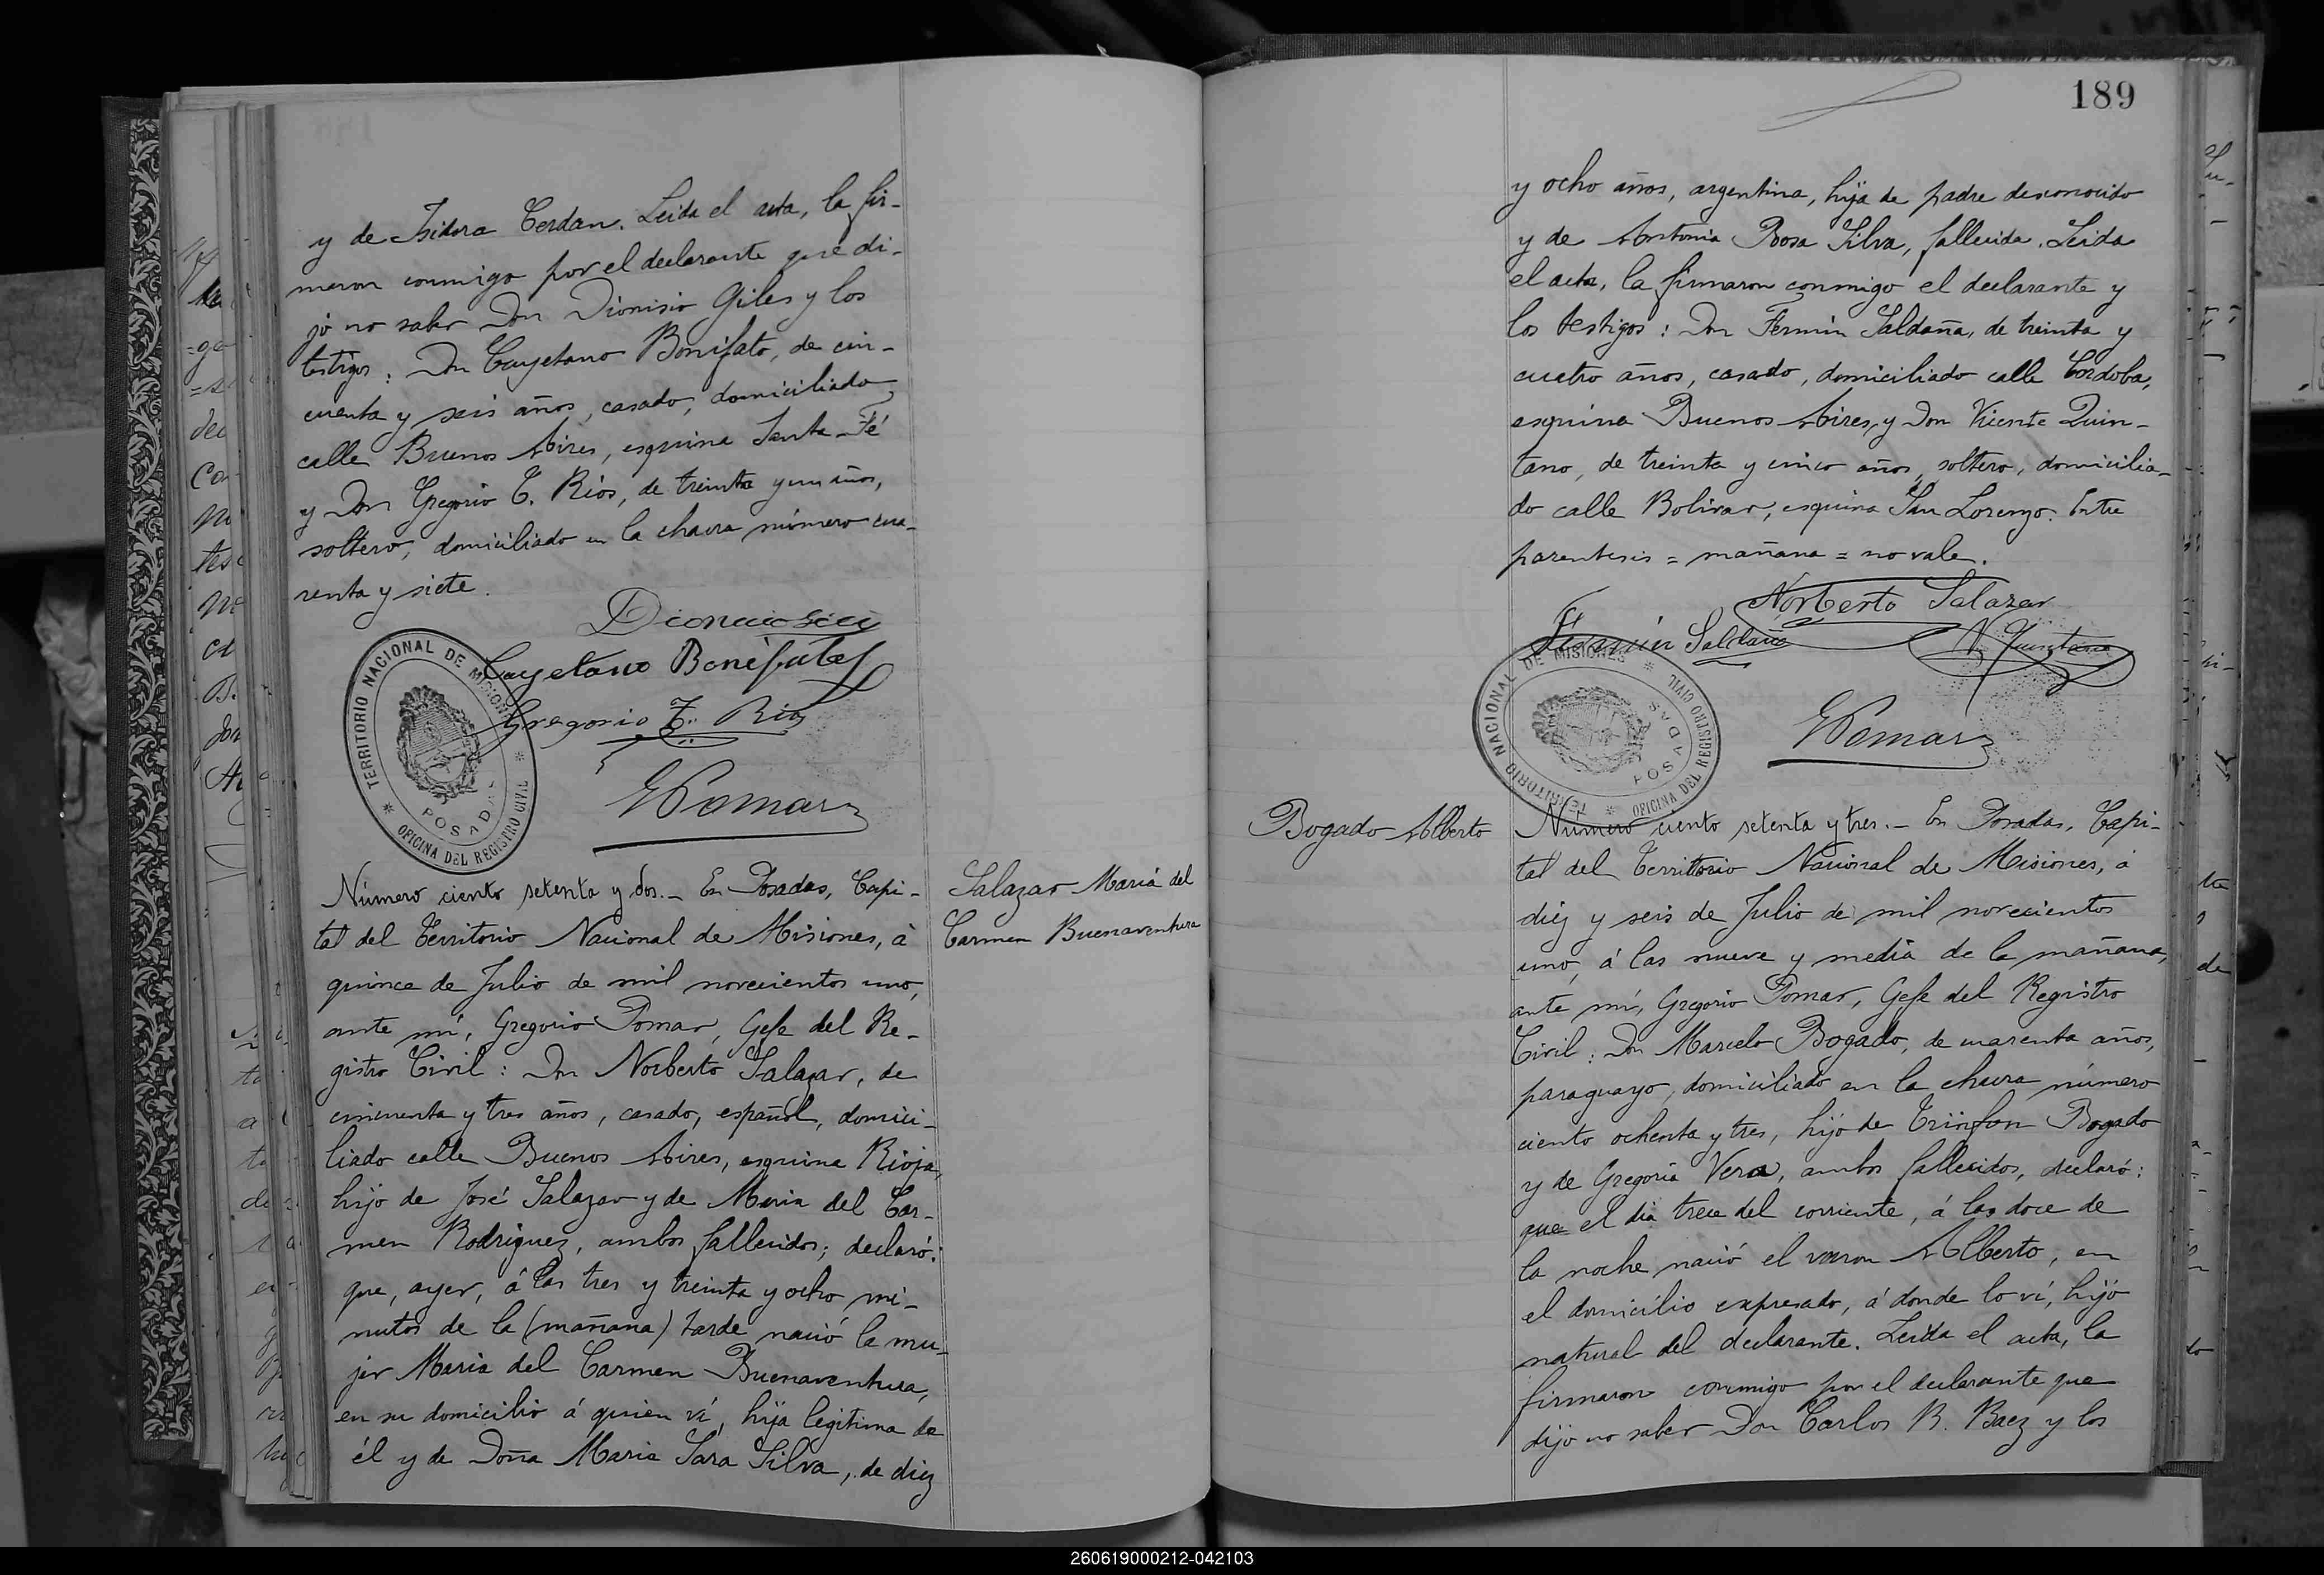 y de Isidora Cerdan. Leida el acta, la fir-
maron conmigo por el declarante que di-
jo no saber Don Dionisio Giles y los
testigos: Don Cayetano Bonifato, de cin-
cuenta y seis años, casado, domiciliado
calle Buenos Aires, esquina Santa-Fé
y Don Gregorio T. Rios, de treinta y un años,
soltero, domiciliado en la chacra número cua-
renta y siete.
Cayetano Bonifato
Gregorio T. Rios
GPomar
TERRITORIO NACIONAL DE MISIONES
POSADAS
OFICINA DEL REGISTRO CIVIL
Número ciento setenta y dos.- En Posadas, Capi-
tal del Territorio Nacional de Misiones, à
quince de Julio de mil novecientos uno,
ante mí, Gregorio Pomar, Gefe del Re-
gistro Civil: Don Norberto Salazar, de
cincuenta y tres años, casado, español, domici-
liado calle Buenos Aires, esquina Rioja,
hijo de José Salazar y de Maria del Car-
men Rodriguez, ambos fallecidos; declaró:
que, ayer, á las tres y treinta y ocho mi-
nutos de la (mañana) tarde nació la mu-
jer Maria del Carmen Buenaventura,
en su domicilio á quien ví, hija legitima de
él y de Doña Maria Sara Silva, de diez
Salazar Mariá del
Carmen Buenaventura
189
y ocho años, argentina, hija de padre desconocido
y de Antonia Rosa Silva, fallecida. Leida
el acta, la firmaron conmigo el declarante y
los testigos: Don Fermin Saldaña, de treinta y
cuatro años, casado, domiciliado calle Cordoba,
esquina Buenos Aires, y Don Vicente Quin-
tano, de treinta y cinco años, soltero, domicilia-
do calle Bolivar, esquina San Lorenzo. Entre
parentesis = mañana = no vale.
Norberto Salazar
Fermin Saldaña
V. Quintana
GPomar
TERRITORIO NACIONAL DE MISIONES
POSADAS
OFICINA DEL REGISTRO CIVIL
Bogado Alberto
Número ciento setenta y tres.- En Posadas, Capi-
tal del Territorio Nacional de Misiones, á
diez y seis de Julio de mil novecientos
uno, á las nueve y media de la mañana,
ante mí, Gregorio Pomar, Gefe del Registro
Civil: Don Marcelo Bogado, de cuarenta años,
paraguayo, domiciliado en la chacra número
ciento ochenta y tres, hijo de Bogado
y de Gregoria Vera, ambos fallecidos, declaró:
que el dia trece del corriente, á las doce de
la noche nació el varon Alberto, en
el domicilio expresado, á donde lo ví, hijo
natural del declarante. Leida el acta, la
firmaron conmigo por el declarante que
dijo no saber Don Carlos R. Baez y los
260619000212-042103